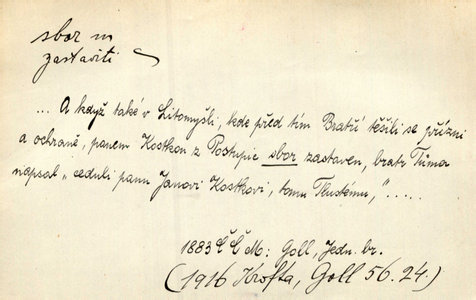 sbor m
zastaviti
... A když také v Litomyšli, kde před tím Bratří těšili se přízni
a ochraně, panem Kostkou z Postupic sbor zastaven, bratr Tůma
napsal „ceduli panu Janovi Kostkovi, tomu Tlustému,“.....
1883 ČČM: Goll, Jedn. br.
(1916 Krofta, Goll 56.24.)